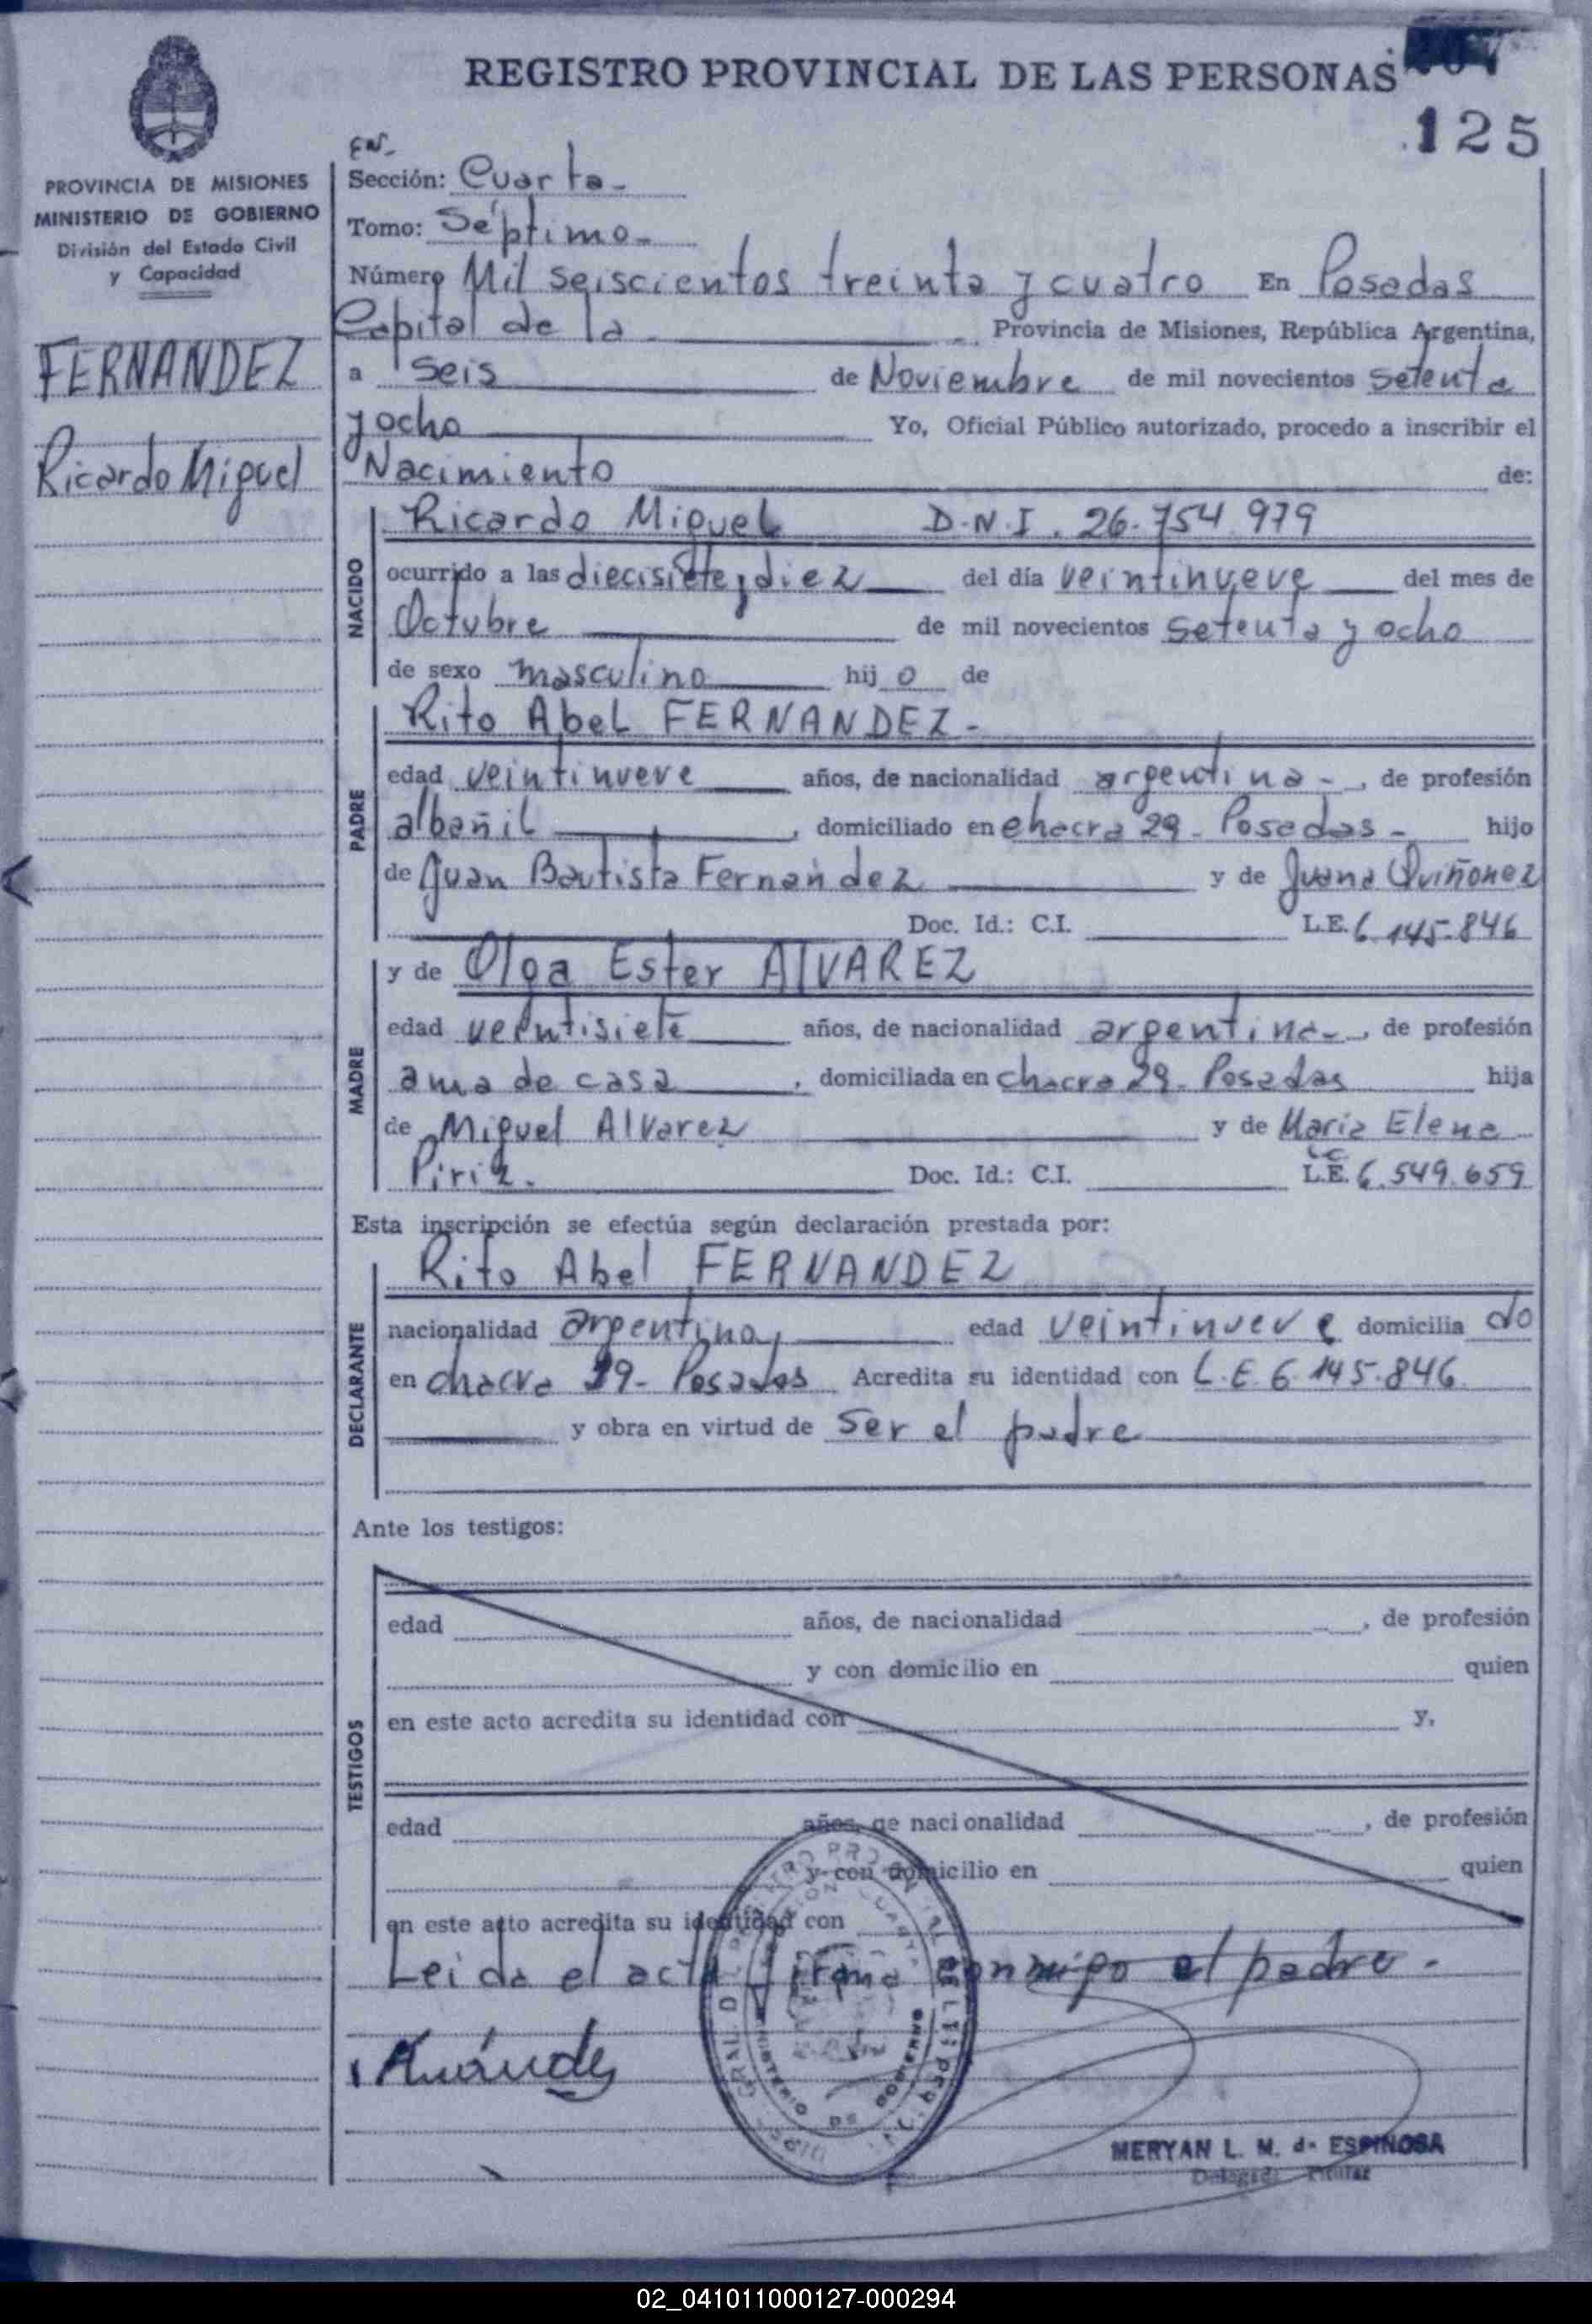 REGISTRO PROVINCIAL DE LAS PERSONAS
125
PROVINCIA DE MISIONES
MINISTERIO DE GOBIERNO
División del Estado Civil
y Capacidad
FERNANDEZ
Ricardo Miguel
Sección: Cuarta-
Tomo: Séptimo-
Número Mil seiscientos treinta y cuatro En Posadas
Capital de la Provincia de Misiones, República Argentina,
a seis de Noviembre de mil novecientos setenta
y ocho Yo, Oficial Público autorizado, procedo a inscribir el
Nacimiento de:
NACIDO
Ricardo Miguel D.N.I. 26.754.979
ocurrido a las diecisiete y diez del día veintinueve del mes de
Octubre de mil novecientos setenta y ocho
de sexo masculino hij o de
PADRE
Rito Abel FERNANDEZ-
edad veintinueve años, de nacionalidad argentina-, de profesión
albañil, domiciliado en chacra 29- Posadas- hijo
de Juan Bautista Fernández y de Juana Quiñonez
Doc. Id.: C.I. L.E. 6.145.846
MADRE
y de Olga Ester ALVAREZ
edad veintisiete años, de nacionalidad argentina-, de profesión
ama de casa, domiciliada en chacra 29- Posadas hija
de Miguel Alvarez y de Maria Elena
Piriz. Doc. Id.: C.I. L.E. L.C. 6.549.659
Esta inscripción se efectúa según declaración prestada por:
DECLARANTE
Rito Abel FERNANDEZ
nacionalidad argentina, edad veintinueve domicilia do
en chacra 29- Posadas Acredita su identidad con L.E. 6.145.846
y obra en virtud de ser el padre
Ante los testigos:
TESTIGOS
edad años, de nacionalidad , de profesión
y con domicilio en quien
en este acto acredita su identidad con y,
edad años, de nacionalidad , de profesión
y con domicilio en quien
en este acto acredita su identidad con
Leida el acta firma conmigo el padre-
MERYAN L. M. de ESPINOSA
Delegada Titular
02_041011000127-000294